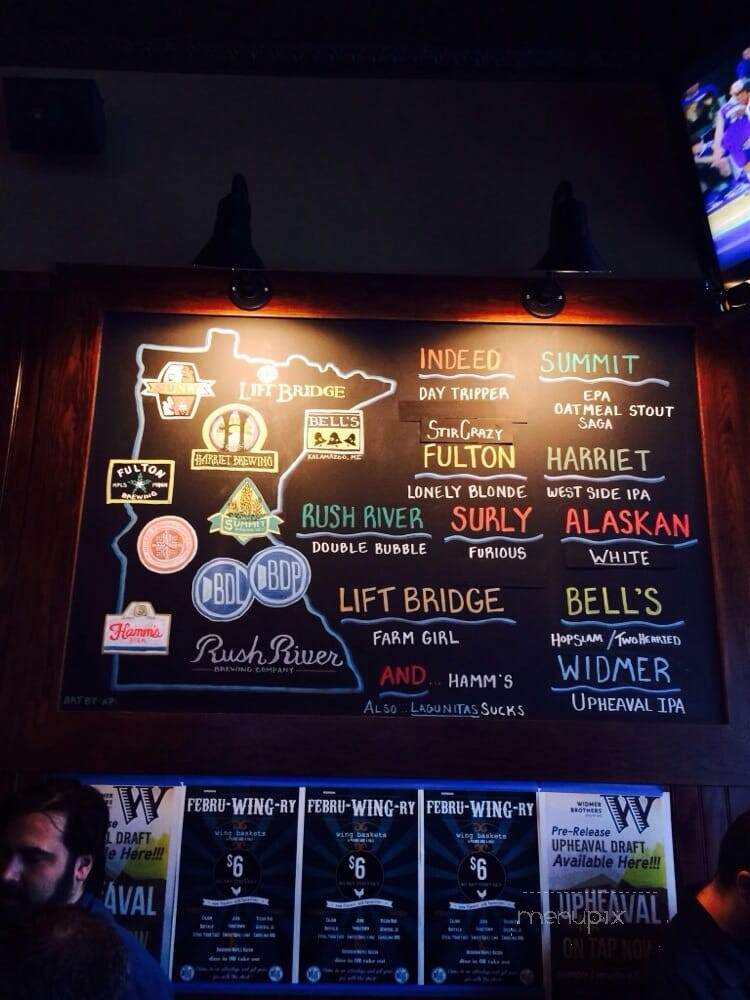 LIFT BRIDGE
HARRIET BREWING
BELL'S
KALAMAZOO, MI
FULTON
MPLS MINN
BREWING
SUMMIT
BDL BDP
Hamm's
BEER
Rush River
BREWING COMPANY
INDEED
DAY TRIPPER
STIR CRAZY
SUMMIT
EPA
OATMEAL STOUT
SAGA
FULTON
LONELY BLONDE
HARRIET
WEST SIDE IPA
RUSH RIVER
DOUBLE BUBBLE
SURLY
FURIOUS
ALASKAN
WHITE
LIFT BRIDGE
FARM GIRL
BELL'S
HOPSLAM / TWO HEARTED
AND... HAMM'S
ALSO... LAGUNITAS SUCKS
WIDMER
UPHEAVAL IPA
W
DRAFT
Here!!!
AVAL
FEBRU-WING-RY
wing baskets
$6
dine in OR take out
FEBRU-WING-RY
wing baskets
$6
dine in OR take out
FEBRU-WING-RY
wing baskets
$6
dine in OR take out
WIDMER
BROTHERS
W
Pre-Release
UPHEAVAL DRAFT
Available Here!!!
UPHEAVAL
ON TAP NOW
menupix